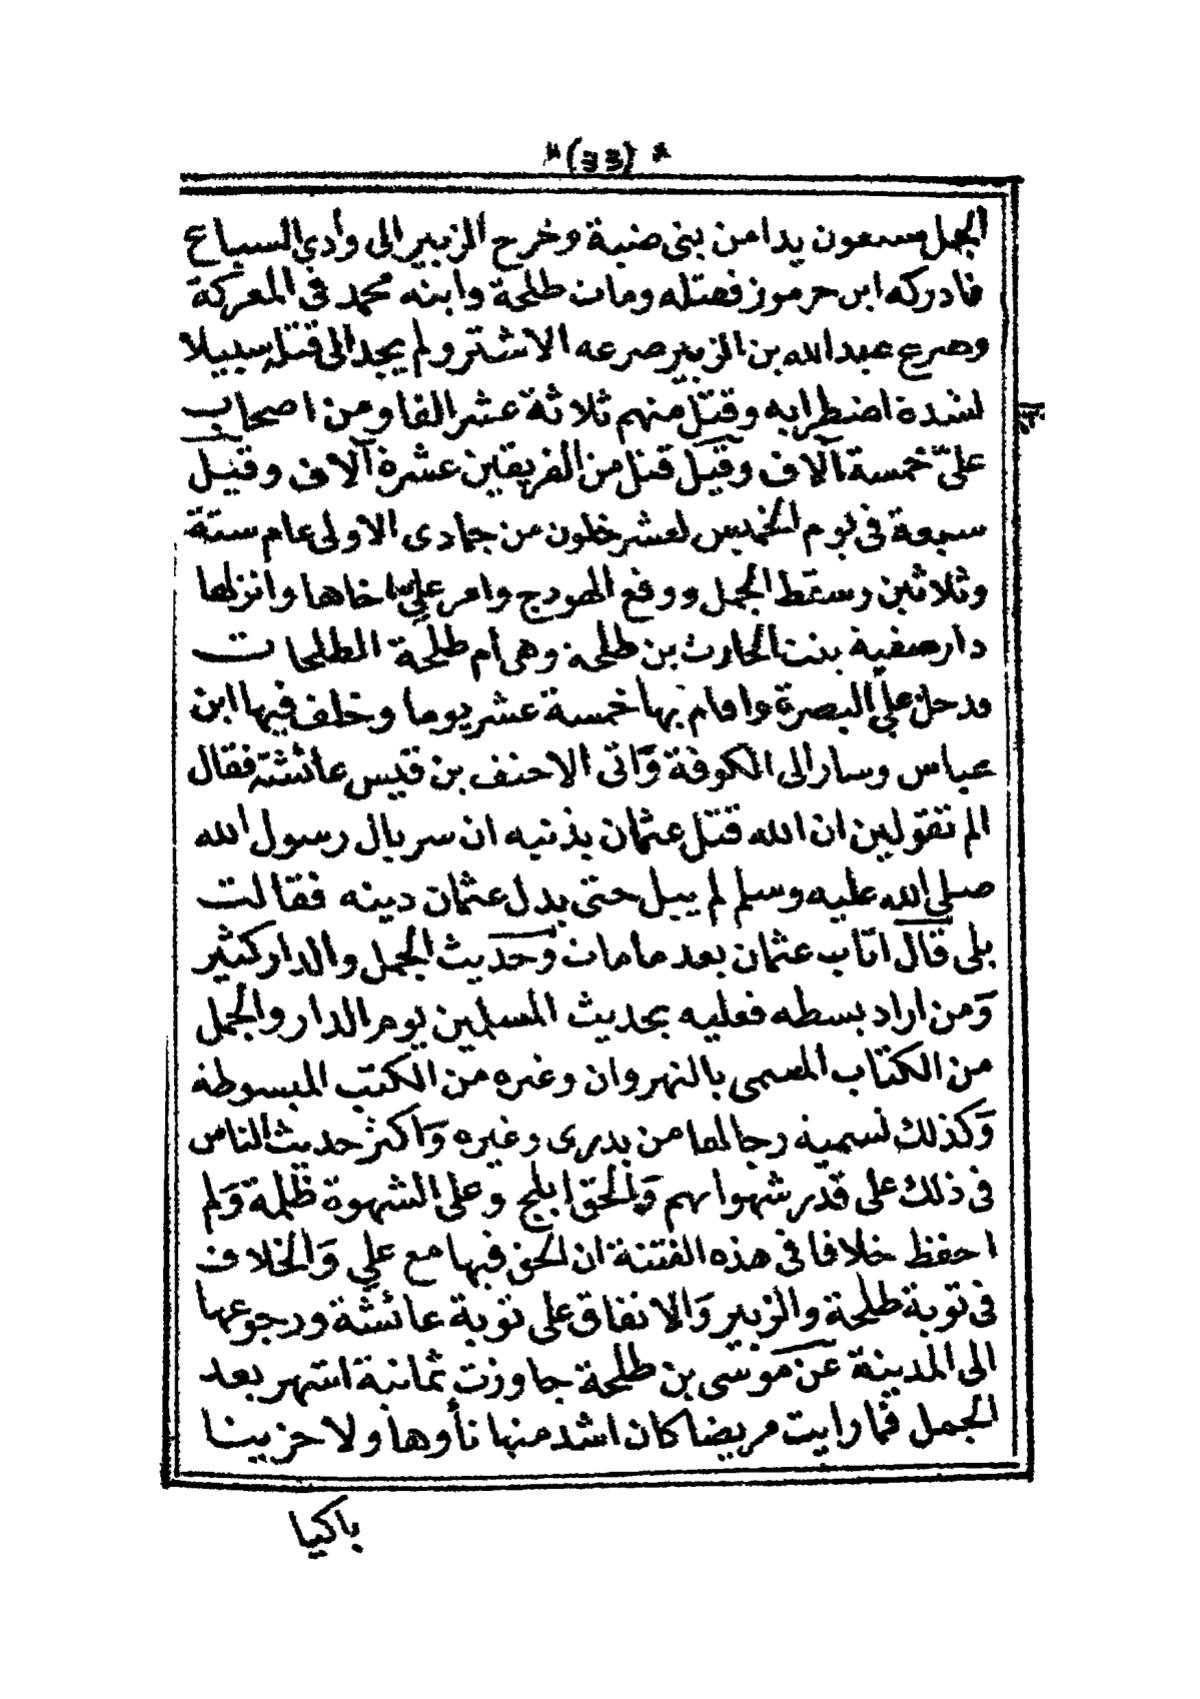 *(٤٤)*
الجمل سبعون يدا من بنى ضبة وخرج الزبير الى وادي السباع
فادركه ابن جرموز فقتله ومات طلحة وابنه محمد فى المعركة
وصرع عبد الله بن الزبير صرعه الاشتر ولم يجد الى قتله سبيلا
لشدة اضطرابه وقتل منهم ثلاثة عشر الفا ومن اصحاب
علىّ خمسة آلاف وقيل قتل من الفريقين عشرة آلاف وقيل
سبعة فى يوم الخميس لعشر خلون من جمادى الاولى عام ستة
وثلاثين وسقط الجمل ووقع الهودج وامر علىّ اخاها وانزلها
دار صفية بنت الحارث بن طلحة وهى أم طلحة الطلحات
ودخل علي البصرة واقام بها خمسة عشر يوما وخلف فيها ابن
عباس وسار الى الكوفة وَاتى الاحنف بن قيس عائشة فقال
الم تقولين ان الله قتل عثمان بذنبه ان سربال رسول الله
صلى الله عليه وسلم لم يبل حتى بدل عثمان دينه فقالت
بلى قال اتاب عثمان بعد ما مات وَحديث الجمل والدار كثير
وَمن اراد بسطه فعليه بحديث المسلمين يوم الدار والجمل
من الكتاب المسمى بالنهروان وغيره من الكتب المبسوطة
وَكذلك تسمية رجالها من بدرى وغيره وَاكثر حديث الناس
فى ذلك على قدر شهواتهم وَالحق ابلج وعلى الشهوة ظلمة وَلم
احفظ خلافا فى هذه الفتنة ان الحق فيها مع علي وَالخلاف
فى توبة طلحة والزبير وَالاتفاق على توبة عائشة ورجوعها
الى المدينة عن موسى بن طلحة جاوزت ثمانية اشهر بعد
الجمل فما رايت مريضا كان اشد منها تأوها ولا حزينا
باكيا